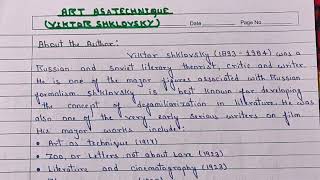 ART AS A TECHNIQUE
(VIKTAR SHKLOVSKY)
Date
Page No
About the Author:
Viktar Shklovsky (1893 - 1984) was a
Russian and soviet literary theorist, critic and writer.
He is one of the major figures associated with Russian
formalism Shklovsky is best known for developing
the concept of defamiliarization in literature. He was
also one of the very early serious writers on film
His major works include:
• Art as technique (1917)
• Zoo, or Letters not about Love (1923)
• Literature and cinematography (1923)